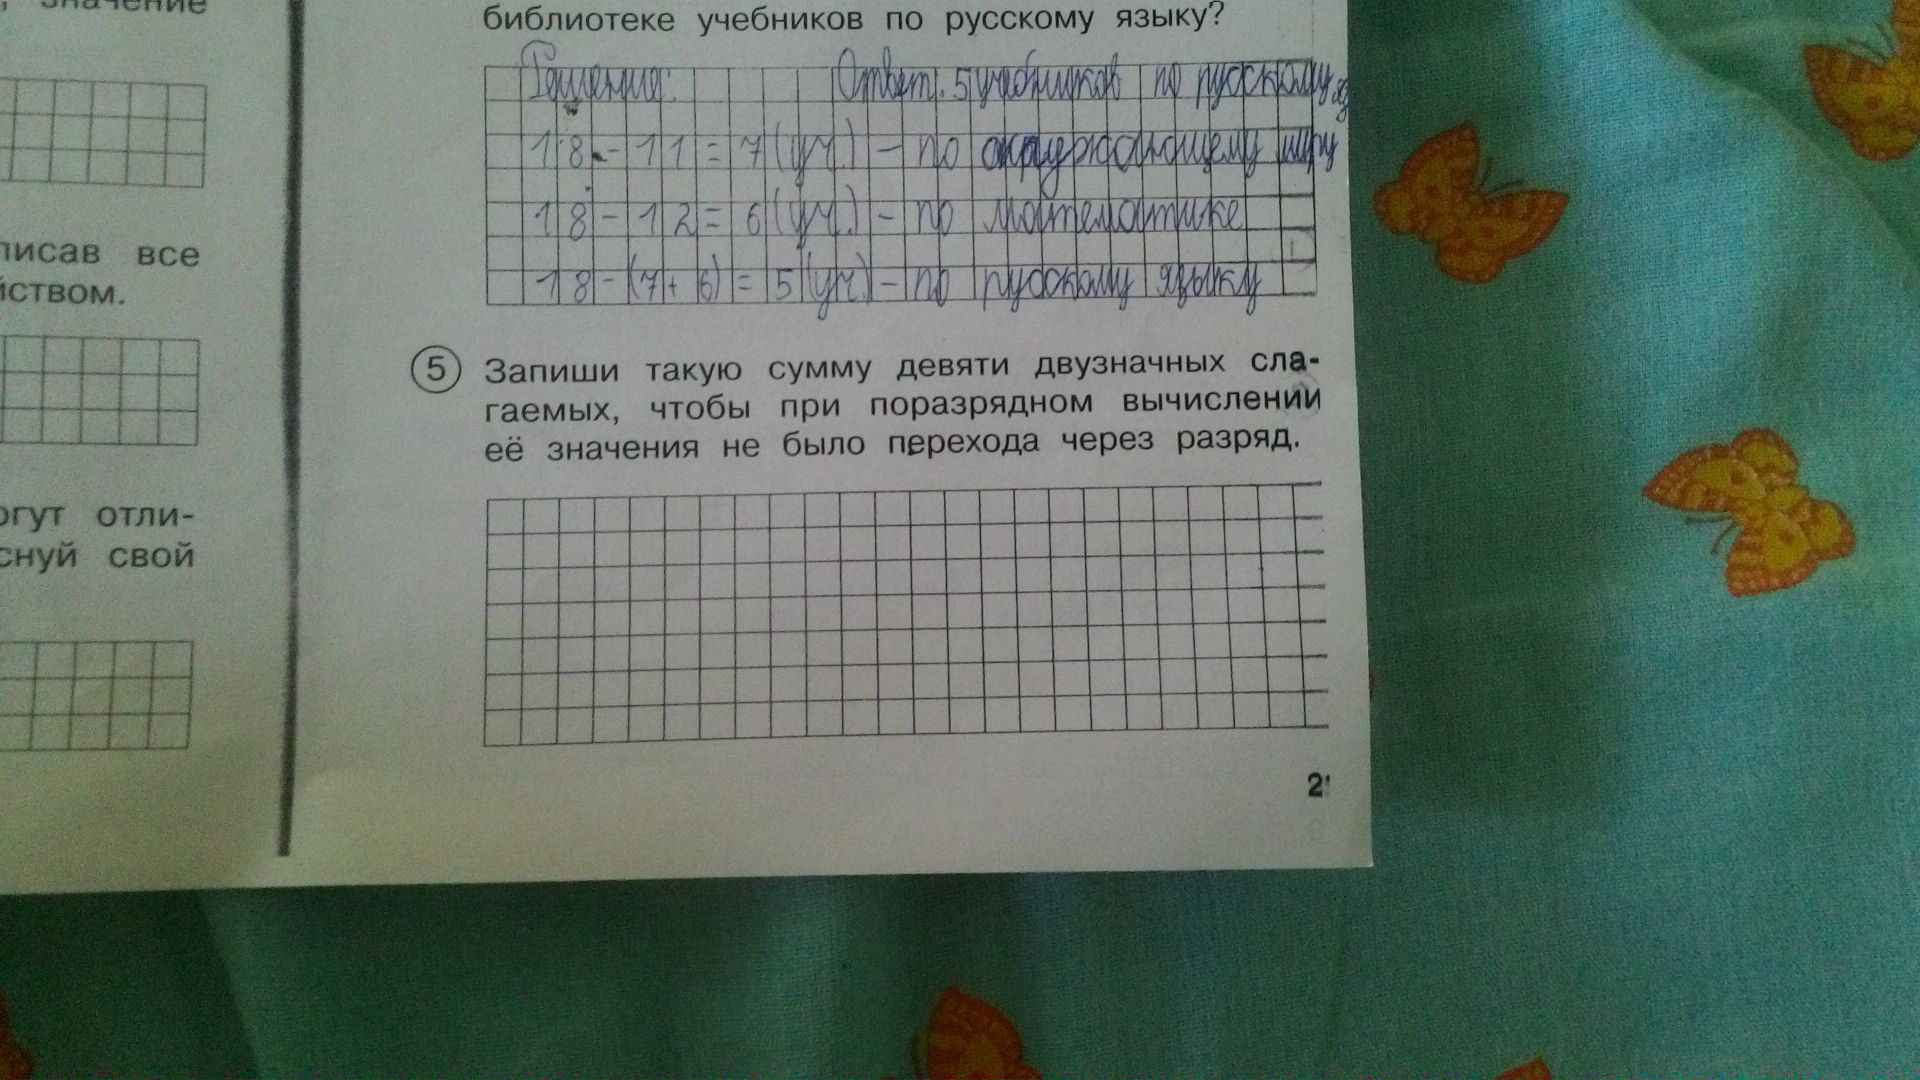 значение
писав все
йством.
огут отли-
снуй свой
библиотеке учебников по русскому языку?
Решение: Ответ. 5 учебников по русскому яз
18 - 11 = 7 (уч.) - по окружающему миру
18 - 12 = 6 (уч.) - по математике
18 - (7 + 6) = 5 (уч.) - по русскому языку
5 Запиши такую сумму девяти двузначных сла-
гаемых, чтобы при поразрядном вычислении
её значения не было перехода через разряд.